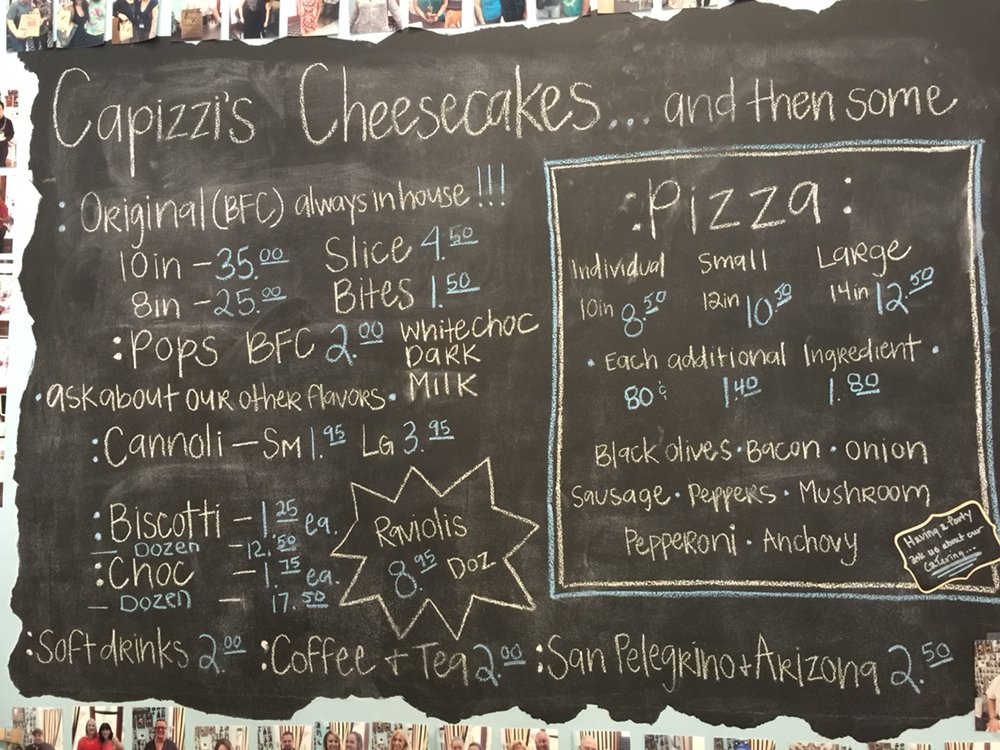 Capizzi's Cheesecakes... and then some
: Original (BFC) always in house!!!
10in - 35.00 Slice 4.50
8in - 25.00 Bites 1.50
: Pops BFC 2.00 White choc
Dark
Milk
• ask about our other flavors •
: Cannoli - Sm 1.95 Lg 3.95
: Biscotti - 1.25 ea.
- Dozen - 12.50
: Choc - 1.75 ea.
- Dozen - 17.50
Raviolis
8.95 Doz
: Pizza :
Individual Small Large
10in 8.50 12in 10.50 14in 12.50
• Each additional Ingredient •
80¢ 1.40 1.80
Black olives • Bacon • onion
Sausage • Peppers • Mushroom
Pepperoni • Anchovy
Having a Party
Ask us about our
Catering...
: Soft drinks 2.00 : Coffee + Tea 2.00 : San Pelegrino + Arizona 2.50